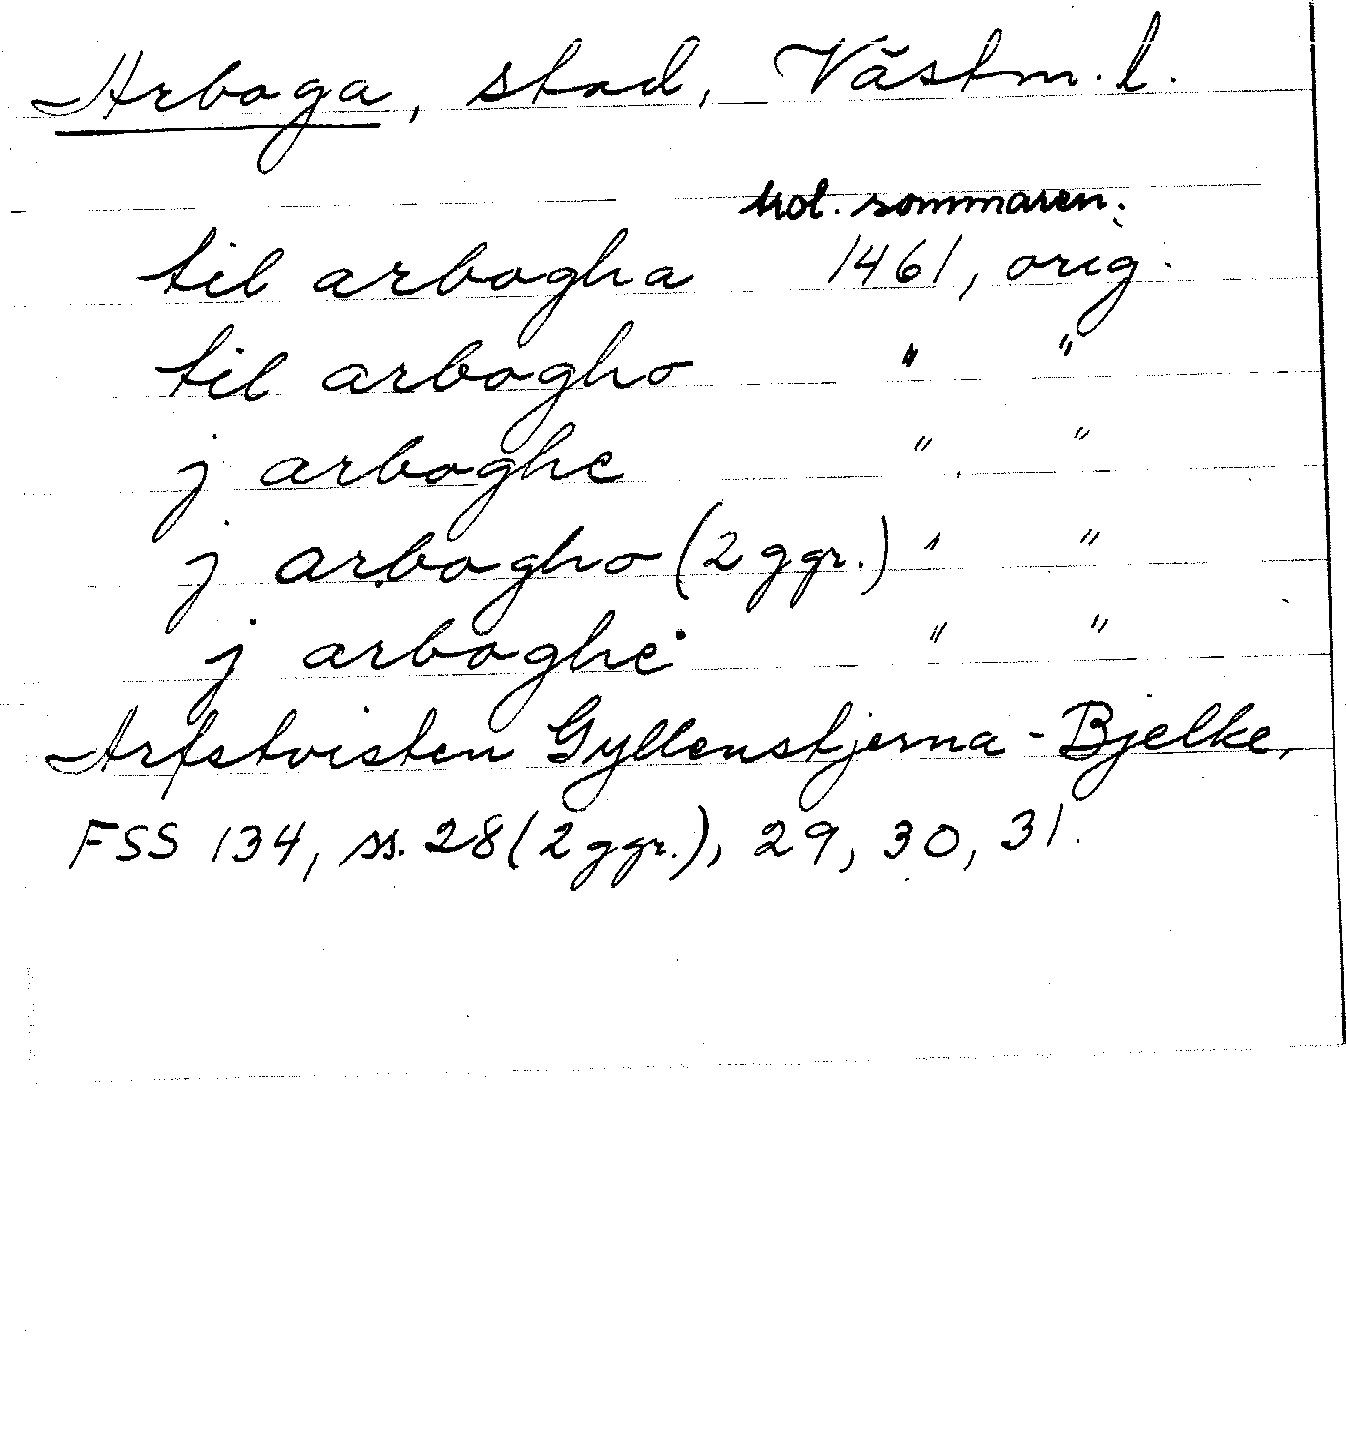 Arboga, stad, Västm. l.
trol. sommaren.
til arbogha 1461, orig.
til arbogho " "
j arboghe " "
j arbogho (2 ggr.) " "
j arboghe " "
Arfstvisten Gyllenstjerna-Bjelke,
FSS 134, ss. 28 (2 ggr.), 29, 30, 31.